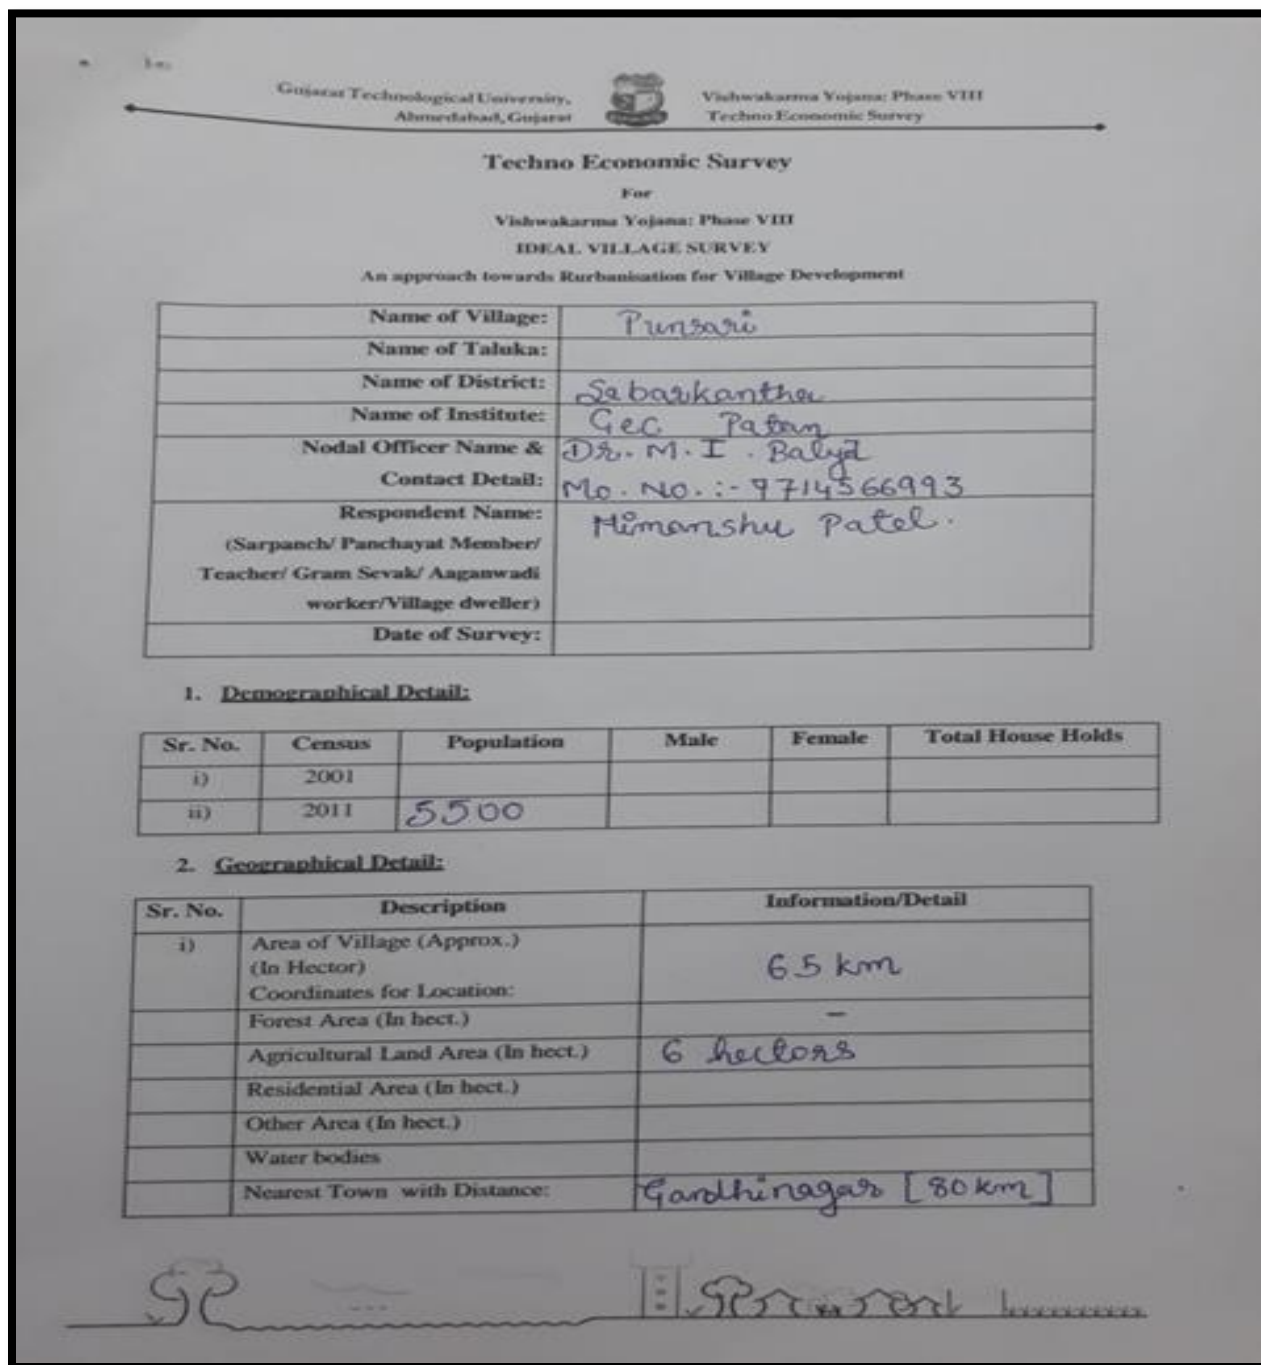 Gujarat Technological University,
Ahmedabad, Gujarat
Vishwakarma Yojana: Phase VIII
Techno Economic Survey
Techno Economic Survey
For
Vishwakarma Yojana: Phase VIII
IDEAL VILLAGE SURVEY
An approach towards Rurbanisation for Village Development
Name of Village: Punsari
Name of Taluka:
Name of District: Sabarkantha
Name of Institute: Gec Patan
Nodal Officer Name & Dr. M. I.
Contact Detail: Mo. No. :- 9714566993
Respondent Name: Himanshu Patel.
(Sarpanch/ Panchayat Member/
Teacher/ Gram Sevak/ Aaganwadi
worker/Village dweller)
Date of Survey:
1. Demographical Detail:
Sr. No. Census Population Male Female Total House Holds
i) 2001
ii) 2011 5500
2. Geographical Detail:
Sr. No. Description Information/Detail
i) Area of Village (Approx.)
(In Hector) 65 km
Coordinates for Location:
Forest Area (In hect.) -
Agricultural Land Area (In hect.) 6 hectors
Residential Area (In hect.)
Other Area (In hect.)
Water bodies
Nearest Town with Distance: Gandhinagar [80 km]